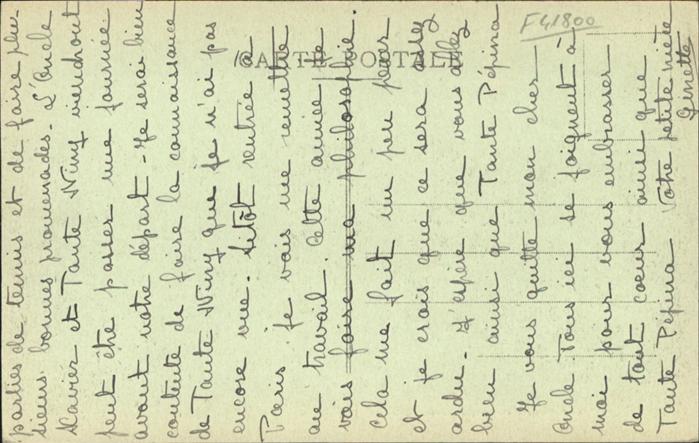 CARTE POSTALE
F41800
parties de tennis et de faire plu-
sieurs bonnes promenades. L'Oncle
Xavier et Tante Winy viendront
peut être passer une journée
avant notre départ - Je serai bien
contente de faire la connaissance
de Tante Winy que je n'ai pas
encore vue. Sitôt rentrée à
Paris je vais me remettre
au travail. Cette année je
vais faire ma philosophie.
cela me fait un peu peur
et je crois que ce sera assez
ardu. J'espère que vous allez
bien ainsi que Tante Pépina
Je vous quitte mon cher
Oncle Tous ici se joignent à
moi pour vous embrasser
de tout coeur ainsi que
Tante Pépina Votre petite nièce
Ginette